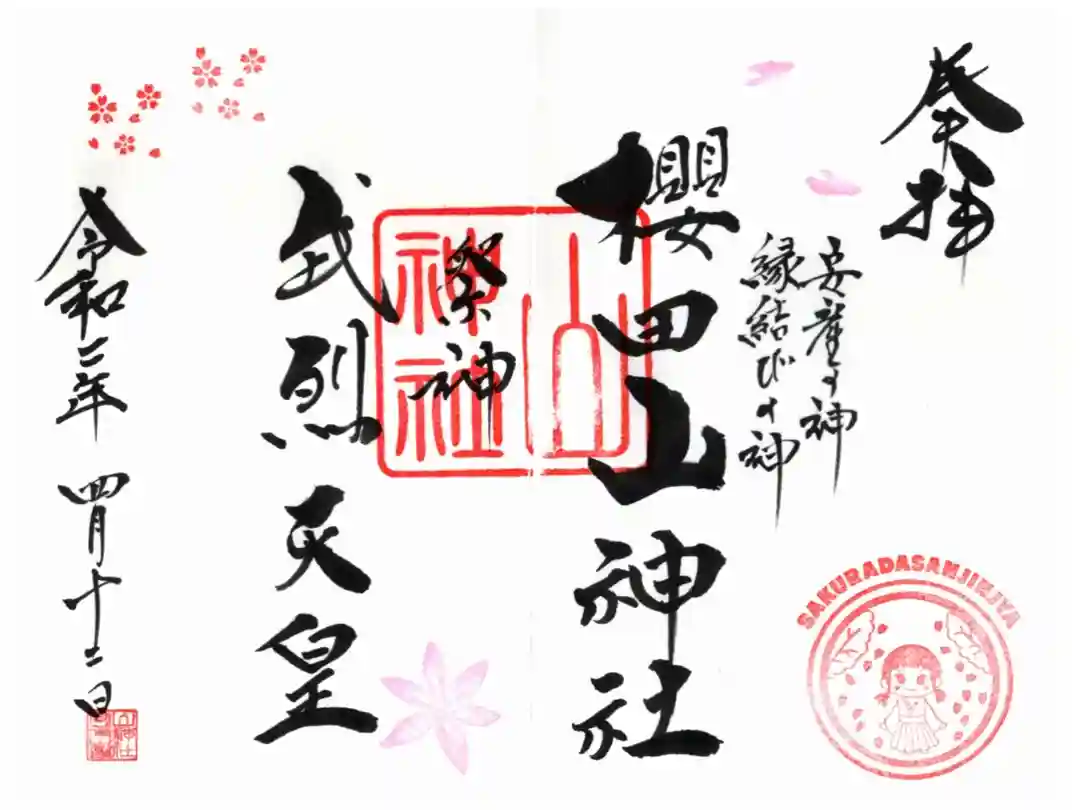 奉拝
安産の神
縁結びの神
櫻田山神社
山神社
祭神
武烈天皇
令和二年 四月十二日
SAKURADASANJINJYA